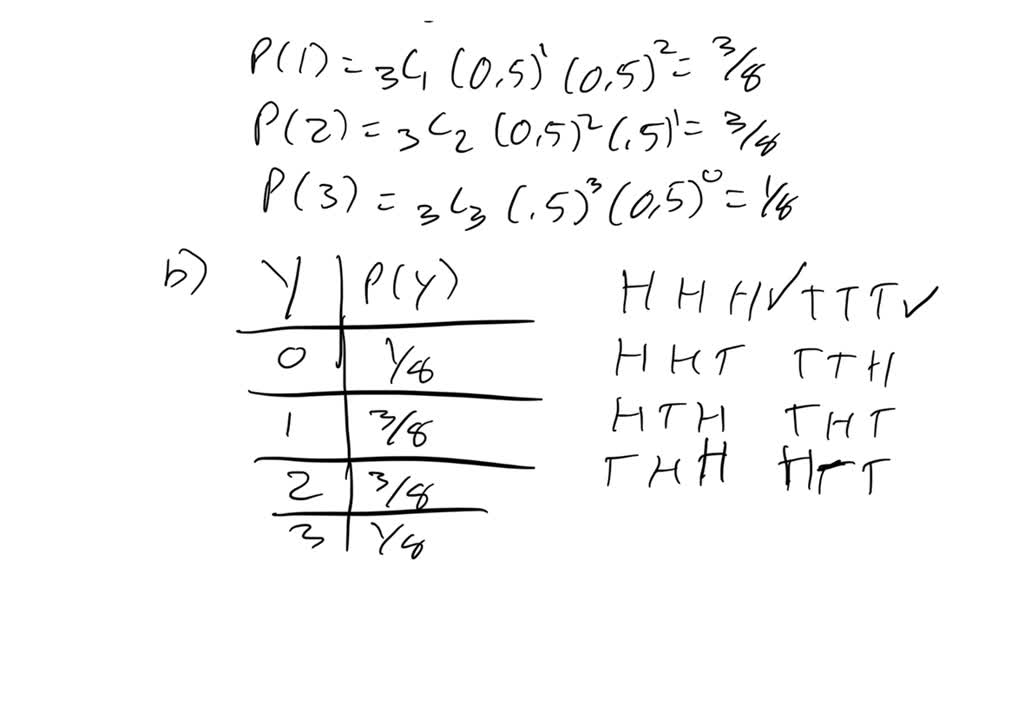 P(1) = ₃C₁ (0,5)¹ (0,5)² = 3/8
P(2) = ₃C₂ (0,5)² (.5)¹ = 3/8
P(3) = ₃C₃ (.5)³ (0,5)⁰ = 1/8
b) Y P(Y)
0 1/8
1 3/8
2 3/8
3 1/8
H H H ✓ T T T ✓
H H T T T H
H T H T H T
T H H H T T